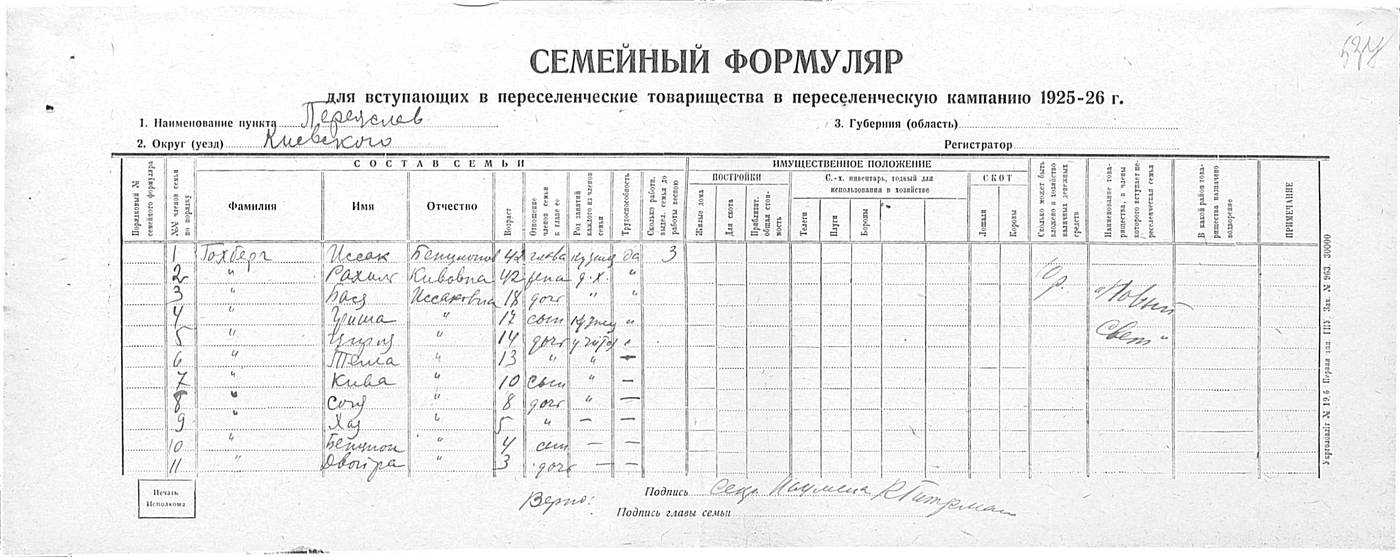 СЕМЕЙНЫЙ ФОРМУЛЯР
для вступающих в переселенческие товарищества в переселенческую кампанию 1925-26 г.
1. Наименование пункта Переяслав
3. Губерния (область)
2. Округ (уезд) Киевского
Регистратор
СОСТАВ СЕМЬИ
ИМУЩЕСТВЕННОЕ ПОЛОЖЕНИЕ
ПОСТРОЙКИ
С.-х. инвентарь, годный для использования в хозяйстве
СКОТ
Порядковый № семейного формуляра
№№ членов семьи по порядку
Фамилия
Имя
Отчество
Возраст
Отношение членов семьи к главе ее
Род занятий каждого из членов семьи
Трудоспособность
Сколько работн. выдел. семья до работы весною
Жилые дома
Для скота
Приблизит. общая стоимость
Телеги
Плуги
Бороны
Лошади
Коровы
Сколько может быть вложено в хозяйство наличных денежных средств
Наименование товарищества, в члены которого вступает переселенческая семья
В какой район товарищества назначено водворение
ПРИМЕЧАНИЕ
1 Гохберг Иссак Бенционов 42 глава кузнец да 3
2 " Рахиль Кивовна 42 жена д.х. "
3 " Бася Иссаковна 18 дочь " "
4 " Гриша " 17 сын кузнец "
5 " " 14 дочь "
6 " " 13 " " —
7 " Кива " 10 сын " —
8 " Соня " 8 дочь " —
9 " Хая " 5 " — —
10 " Бенцион " 4 сын — —
11 " Двойра " 3 дочь — —
"Новый
Свет"
Печать
Исполкома
Верно:
Подпись
Подпись главы семьи
Укрголовліт № 19,6 Перша др. Зак. № 963. 30000